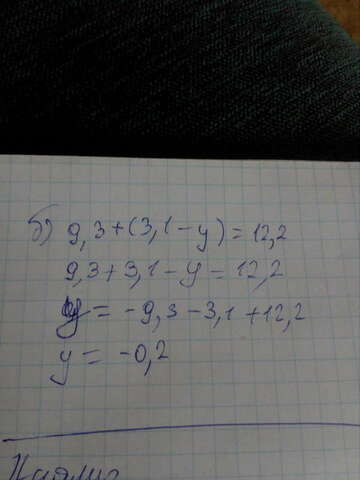 б) 9,3+(3,1-y)=12,2
9,3+3,1-y=12,2
y=-9,3-3,1+12,2
y=-0,2